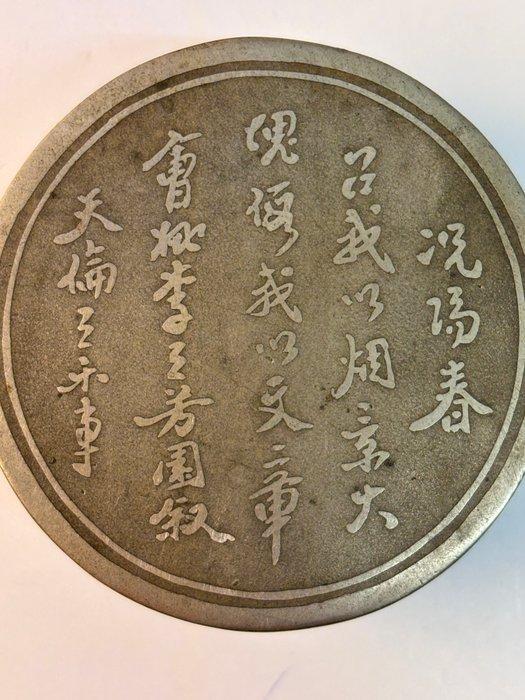 况陽春
召我以烟景大
塊假我以文章
會桃李之芳園叙
天倫之乐事